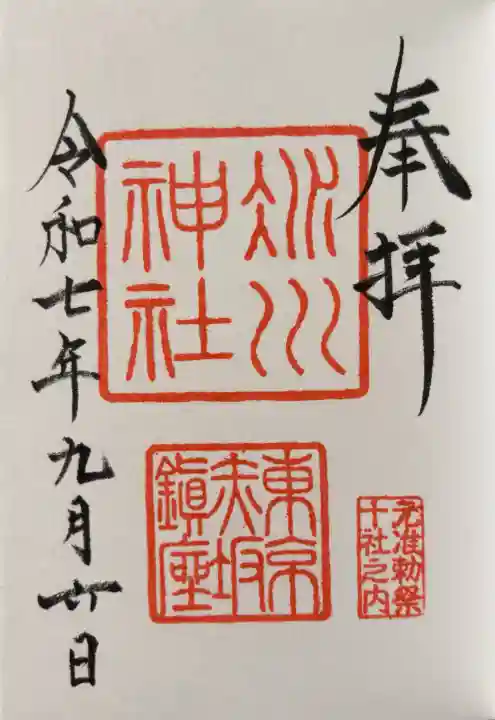 奉拝
氷川
神社
東京
赤坂
鎮座
元准勅祭
十社之内
令和七年九月廿日